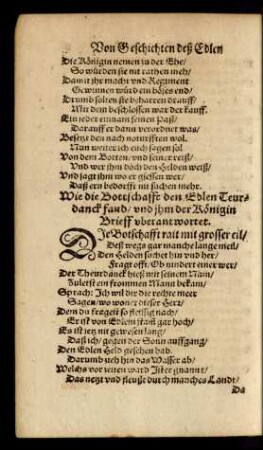 Von Geschichten deß Edlen
Die Königin nemen zu der Ehe/
So würden sie nit rathen meh/
Damit ihr macht vnd Regiment
Gewinnen würd ein böses end/
Drumb solten sie beharren drauff/
Mit dem beschlossen war der kauff.
Ein jeder einnam seinen Paß/
Darauff er dann verordnet was/
Besetzt den nach notturfften wol.
Nun weiter ich euch sagen sol
Von dem Botten/ vnd seiner reiß/
Vnd wer ihm doch den Helden weiß/
Vnd jagt ihm wo er gsessen wer/
Daß ern bedorfft nit suchen mehr.
Wie die Bottschafft den Edlen Teur-
danck fand/ vnd jhm der Königin
Brieff vberantwortet.
Die Botschafft rait mit grosser eil/
Deß wegs gar manche lange meil/
Den Helden suchet hin vnd her/
Fragt offt, Ob nindert einer wer/
Der Thewrdanck hieß mit seinem Nam/
Zuletst ein frommen Mann bekam/
Sprach: Ich wil dir die rechte meer
Sagen/ wo woner dieser Herr/
Dem du fragest so fleissig nach/
Er ist von Edlem stam gar hoch/
Es ist jetz nit gewesen lang/
Daß ich/ gegen der Sonn auffgang/
Den Edlen Held gesehen hab.
Darumb zeh hin das Wasser ab/
Welchs vor zeiten ward Jster gnannt/
Das netzt vnd fleußt durch manches Landt/
Da